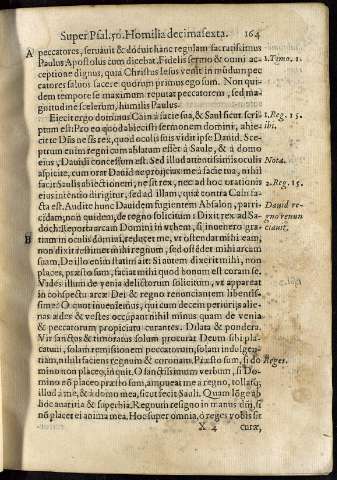 Super Psal. 50. Homilia decimasexta. 164
A peccatores, seruauit & docuit hanc regulam sacratissimus
Paulus Apostolus cum dicebat. Fidelis sermo & omni ac- 1. Tomo. 1.
ceptione dignus, quia Christus Iesus venit in mũdum pec
catores saluos facere quorum primus ego sum. Non qui
dem tempore se maximum reputat peccatorem, sed ma-
gnitudine scelerum, humilis Paulus.
Eiecit ergo dominus Cain à facie sua, & Saul sicut scri- 1. Reg. 15.
ptum est: Pro eo quod abiecisti sermonem domini, abie- ibi.
cit te Dñs ne sis rex, quod oculis suis vidit ipse Dauid. Sce-
ptrum enim regni cum ablatum esset à Saule, & à domo
eius, Dauidi concessum est. Sed illud attentissimis oculis Nota.
aspicite, cum orat Dauid ne proijcias me à facie tua, nihil
facit Saulis abiectionem, ne sit rex, nec ad hoc orationis 2. Reg. 15.
eius intentio dirigitur, sed ad illam, quæ contra Cain fa-
cta est. Audite hunc Dauidem fugientem Absalon, parri- Dauid re-
cidam, non quidem, de regno solicitum: Dixit rex ad Sa- gno renun
B doch: Reporta arcam Domini in vrbem, si inuenero gra- ciauit.
tiam in oculis domini, reducet me, vt ostendat mihi eam,
non dixit restituet mihi regnum, sed ostẽdet mihi arcam
suam, De illo enim statim ait: Si autem dixerit mihi, non
places, præsto sum, faciat mihi quod bonum est coram se.
Vades illum de venia delictorum solicitum, vt appareat
in conspectu arcæ Dei & regno renunciantem libentis-
sime: O quot inuenietis, qui cum decein periurijs alie-
nas ædes & vestes occupãt nihil minus quam de venia
& peccatorum propiciatu curantes. Dilata & pondera.
Vir sanctus & timoratus solum procurat Deum sibi pla-
catum, solam remissionem peccatorum, solam indulgen-
tiam, nihil faciens regnum & coronam. Præsto sum, si do Reges.
mino non placeo, inquit. O sanctissimum verbum, si Do-
mino nõ placeo præsto sum, amoueat me à regno, tollat q;
illud à me, & à domo mea, sicut fecit Sauli. Quam lõge ab
hoc auaritia & superbia. Regnum resigno in manus dñi, si
nõ placet ei anima mea. Hoc super omnia, ó reges vobis sit
X 4 curæ,